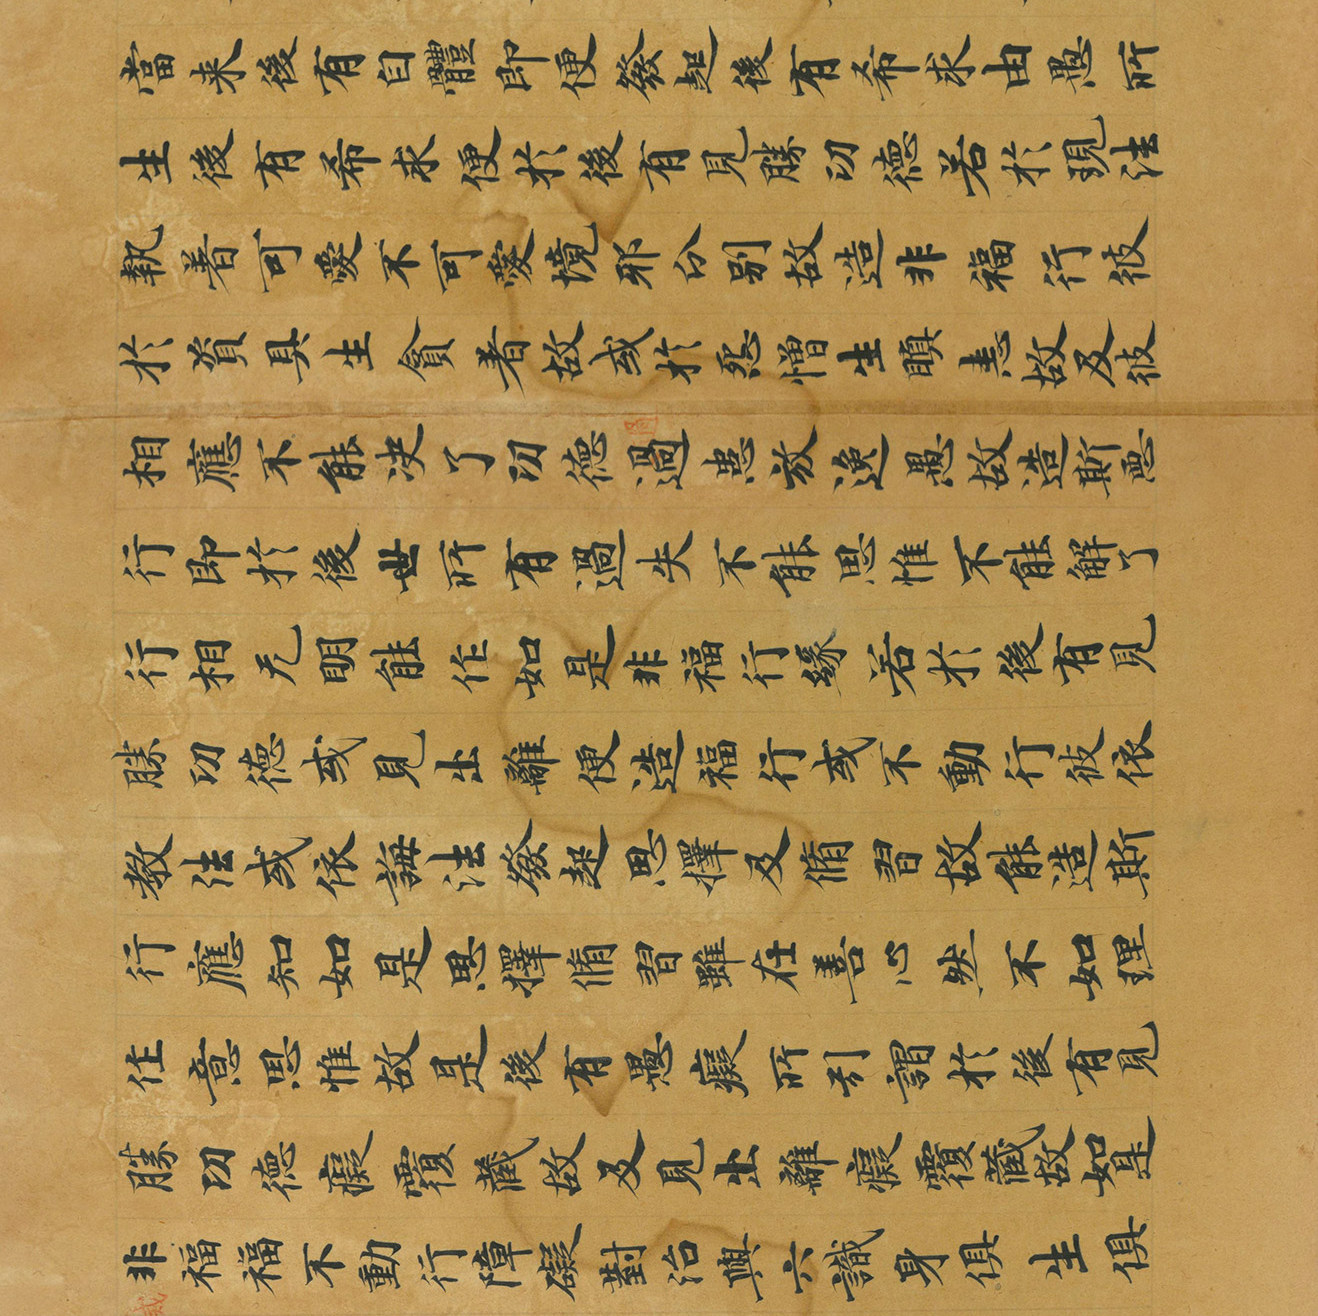 當来後有自體即便發起後有希求由愚所
生後有希求便於後有見勝功德若於現法
執著可愛不可愛境邪分別故造非福行彼
於資具生貪著故或於怨憎生瞋恚故及彼
相應不能决了功德過患放逸愚故造斯惡
行即於後世所有過失不能思惟不能解了
行相无明能作如是非福行緣若於後有見
勝功德或見出離便造福行或不動行彼依
教法或依誨法發起思擇及脩習故能造斯
行應知如是思擇脩習雖在善心然不如理
作意思惟故是後有愚癡所引謂於後有見
勝功德癡覆藏故及見出離癡覆藏故如是
非福福不動行障礙對治與六識身俱生俱